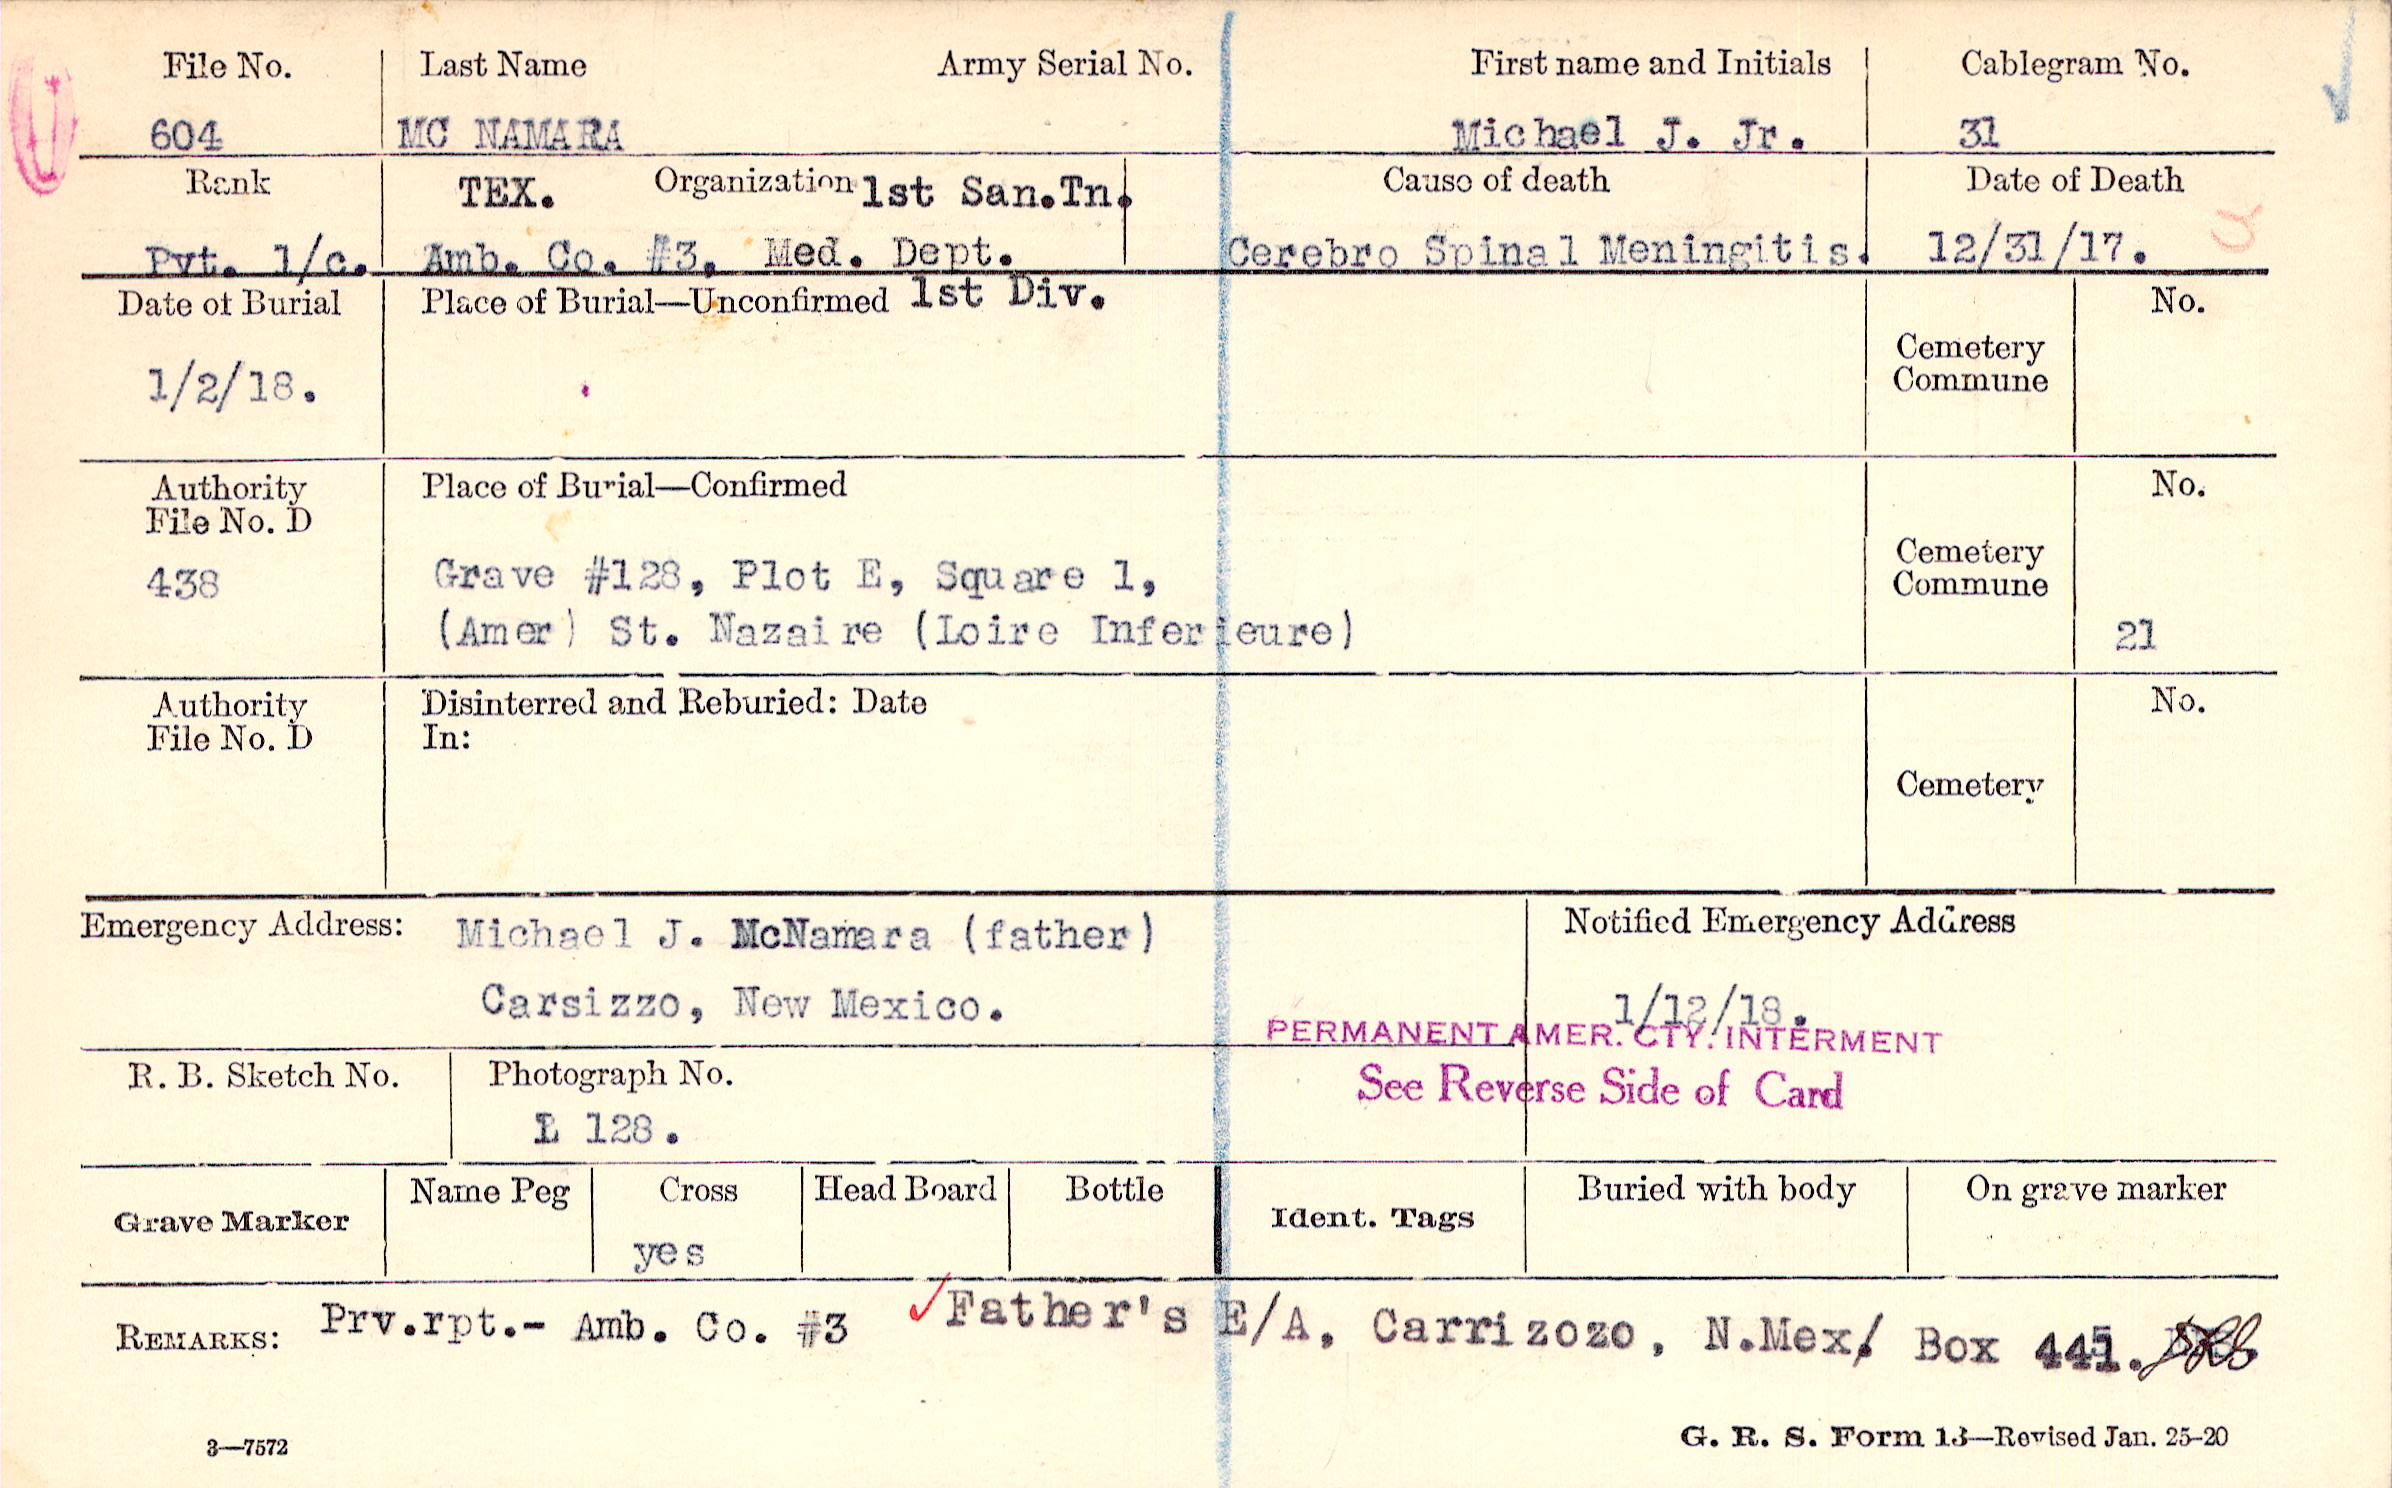 File No. Last Name Army Serial No. First name and Initials Cablegram No.
604 MC NAMARA Michael J. Jr. 31
Rank TEX. Organization 1st San.Tn. Cause of death Date of Death
Pvt. 1/c. Amb. Co. #3, Med. Dept. Cerebro Spinal Meningitis. 12/31/17.
Date of Burial Place of Burial—Unconfirmed 1st Div. No.
Cemetery
Commune
1/2/18.
Authority Place of Burial—Confirmed No.
File No. D
Cemetery
Commune
438 Grave #128, Plot E, Square 1,
(Amer) St. Nazaire (Loire Inferieure) 21
Authority Disinterred and Reburied: Date No.
File No. D In:
Cemetery
Emergency Address: Michael J. McNamara (father) Notified Emergency Address
Carsizzo, New Mexico. 1/12/18.
PERMANENT AMER. CTY. INTERMENT
R. B. Sketch No. Photograph No. See Reverse Side of Card
L 128.
Grave Marker Name Peg Cross Head Board Bottle Ident. Tags Buried with body On grave marker
yes
REMARKS: Prv.rpt.- Amb. Co. #3 ✓Father's E/A, Carrizozo, N.Mex/ Box
3—7572 G. R. S. Form 13—Revised Jan. 25-20